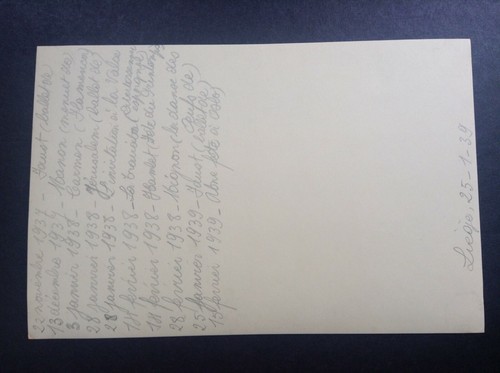 novembre 1937 - Faust (ballet de)
13 décembre 1937 - Manon (menuet de)
3 janvier 1938 - Carmen (Flamenca)
28 janvier 1938 - Hérodiade (ballet de)
28 janvier 1938 - L'invitation à la Valse
1er février 1938 - La Traviata
111 février 1938 - Hamlet (Fête du Printemps)
28 février 1938 - Mignon (la danse des œufs de)
25 janvier 1939 - Faust (ballet de)
1er février 1939 - Une fête à
Liège, 25-1-39